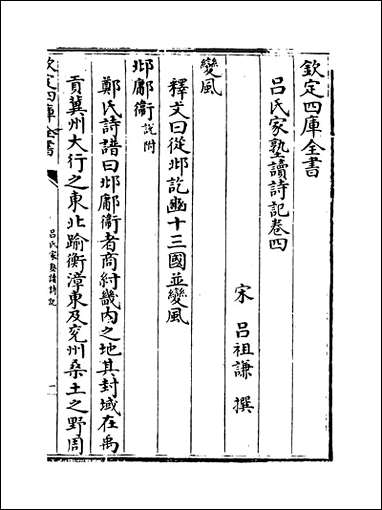 欽定四庫全書
呂氏家塾讀詩記卷四
宋 呂祖謙 撰
變風
釋文曰從邶訖豳十三國並變風
邶鄘衛說附
鄭氏詩譜曰邶鄘衛者商紂畿內之地其封域在禹
貢冀州大行之東北踰衡漳東及兖州桑土之野周
欽定四庫全書
呂氏家塾讀詩記
一